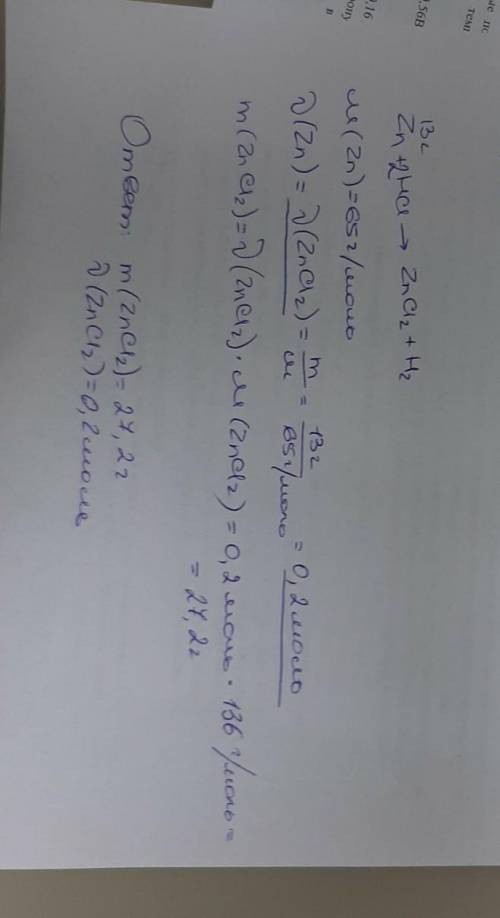 ые пс
теми
.56В
,16
попу
в
13г
Zn + 2HCl → ZnCl₂ + H₂
M(Zn) = 65 г/моль
ν(Zn) = ν(ZnCl₂) = m/M = 13г/65г/моль = 0,2 моль
m(ZnCl₂) = ν(ZnCl₂) · M(ZnCl₂) = 0,2 моль · 136 г/моль =
= 27,2 г
Ответ: m(ZnCl₂) = 27,2 г
ν(ZnCl₂) = 0,2 моль